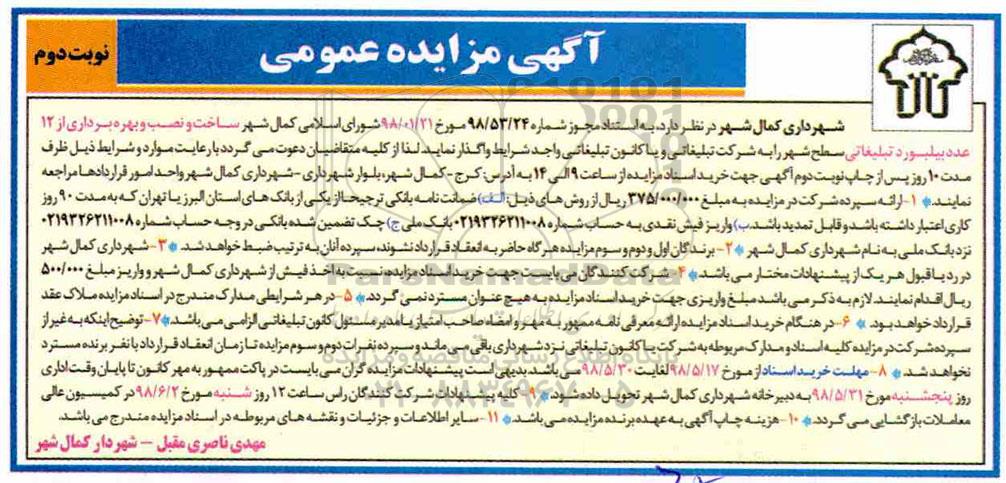 آگهی مزایده عمومی
نوبت دوم
شهرداری کمال شهر در نظر دارد، به استناد مجوز شماره ۹۸/۵۳/۲۴ مورخ ۹۸/۰۱/۲۱ شورای اسلامی کمال شهر ساخت و نصب و بهره برداری از ۱۲
عدد بیلبورد تبلیغاتی سطح شهر را به شرکت تبلیغاتی و یا کانون تبلیغاتی واجد شرایط واگذار نماید. لذا از کلیه متقاضیان دعوت می گردد با رعایت موارد و شرایط ذیل ظرف
مدت ۱۰ روز پس از چاپ نوبت دوم آگهی جهت خرید اسناد مزایده از ساعت ۹ الی ۱۴ به آدرس: کرج - کمال شهر، بلوار شهرداری - شهرداری کمال شهر واحد امور قراردادها مراجعه
نمایند. ۱- ارائه سپرده شرکت در مزایده به مبلغ ۳۷۵/۰۰۰/۰۰۰ ریال از روش های ذیل: الف) ضمانت نامه بانکی ترجیحا از یکی از بانک های استان البرز یا تهران که به مدت ۹۰ روز
کاری اعتبار داشته باشد و قابل تمدید باشد. ب) واریز فیش نقدی به حساب شماره ۰۲۱۹۳۲۶۲۱۱۰۰۸ بانک ملی ج) چک تضمین شده بانکی در وجه حساب شماره ۰۲۱۹۳۲۶۲۱۱۰۰۸
نزد بانک ملی به نام شهرداری کمال شهر ۲- برندگان اول و دوم و سوم مزایده هرگاه حاضر به انعقاد قرارداد نشوند، سپرده آنان به ترتیب ضبط خواهد شد. ۳- شهرداری کمال شهر
در رد یا قبول هر یک از پیشنهادات مختار می باشد. ۴- شرکت کنندگان می بایست جهت خرید اسناد مزایده نسبت به اخذ فیش از شهرداری کمال شهر و واریز مبلغ ۵۰۰/۰۰۰
ریال اقدام نمایند. لازم به ذکر می باشد مبلغ واریزی جهت خرید اسناد مزایده به هیچ عنوان مسترد نمی گردد. ۵- در هر شرایطی مدارک مندرج در اسناد مزایده ملاک عقد
قرارداد خواهد بود. ۶- در هنگام خرید اسناد مزایده ارائه معرفی نامه ممهور به مهر و امضاء صاحب امتیاز یا مدیر مسئول کانون تبلیغاتی الزامی می باشد. ۷- توضیح اینکه به غیر از
سپرده شرکت در مزایده کلیه اسناد و مدارک مربوطه به شرکت یا کانون تبلیغاتی نزد شهرداری باقی می ماند و سپرده نفرات دوم و سوم مزایده تا زمان انعقاد قرارداد با نفر برنده مسترد
نخواهد شد. ۸- مهلت خرید اسناد از مورخ ۹۸/۵/۱۷ لغایت ۹۸/۵/۳۰ می باشد. بدیهی است پیشنهادات مزایده گران می بایست در پاکت ممهور به مهر کانون تا پایان وقت اداری
روز پنجشنبه مورخ ۹۸/۵/۳۱ به دبیرخانه شهرداری کمال شهر تحویل داده شود. ۹- کلیه پیشنهادات شرکت کنندگان راس ساعت ۱۲ روز شنبه مورخ ۹۸/۶/۲ در کمیسیون عالی
معاملات بازگشایی می گردد. ۱۰- هزینه چاپ آگهی به عهده برنده مزایده می باشد. ۱۱- سایر اطلاعات و جزئیات و نقشه های مربوطه در اسناد مزایده مندرج می باشد.
مهدی ناصری مقبل - شهردار کمال شهر